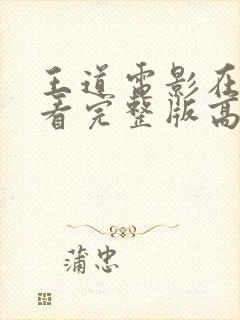 王道雷影在
看完整版高
蒲忠